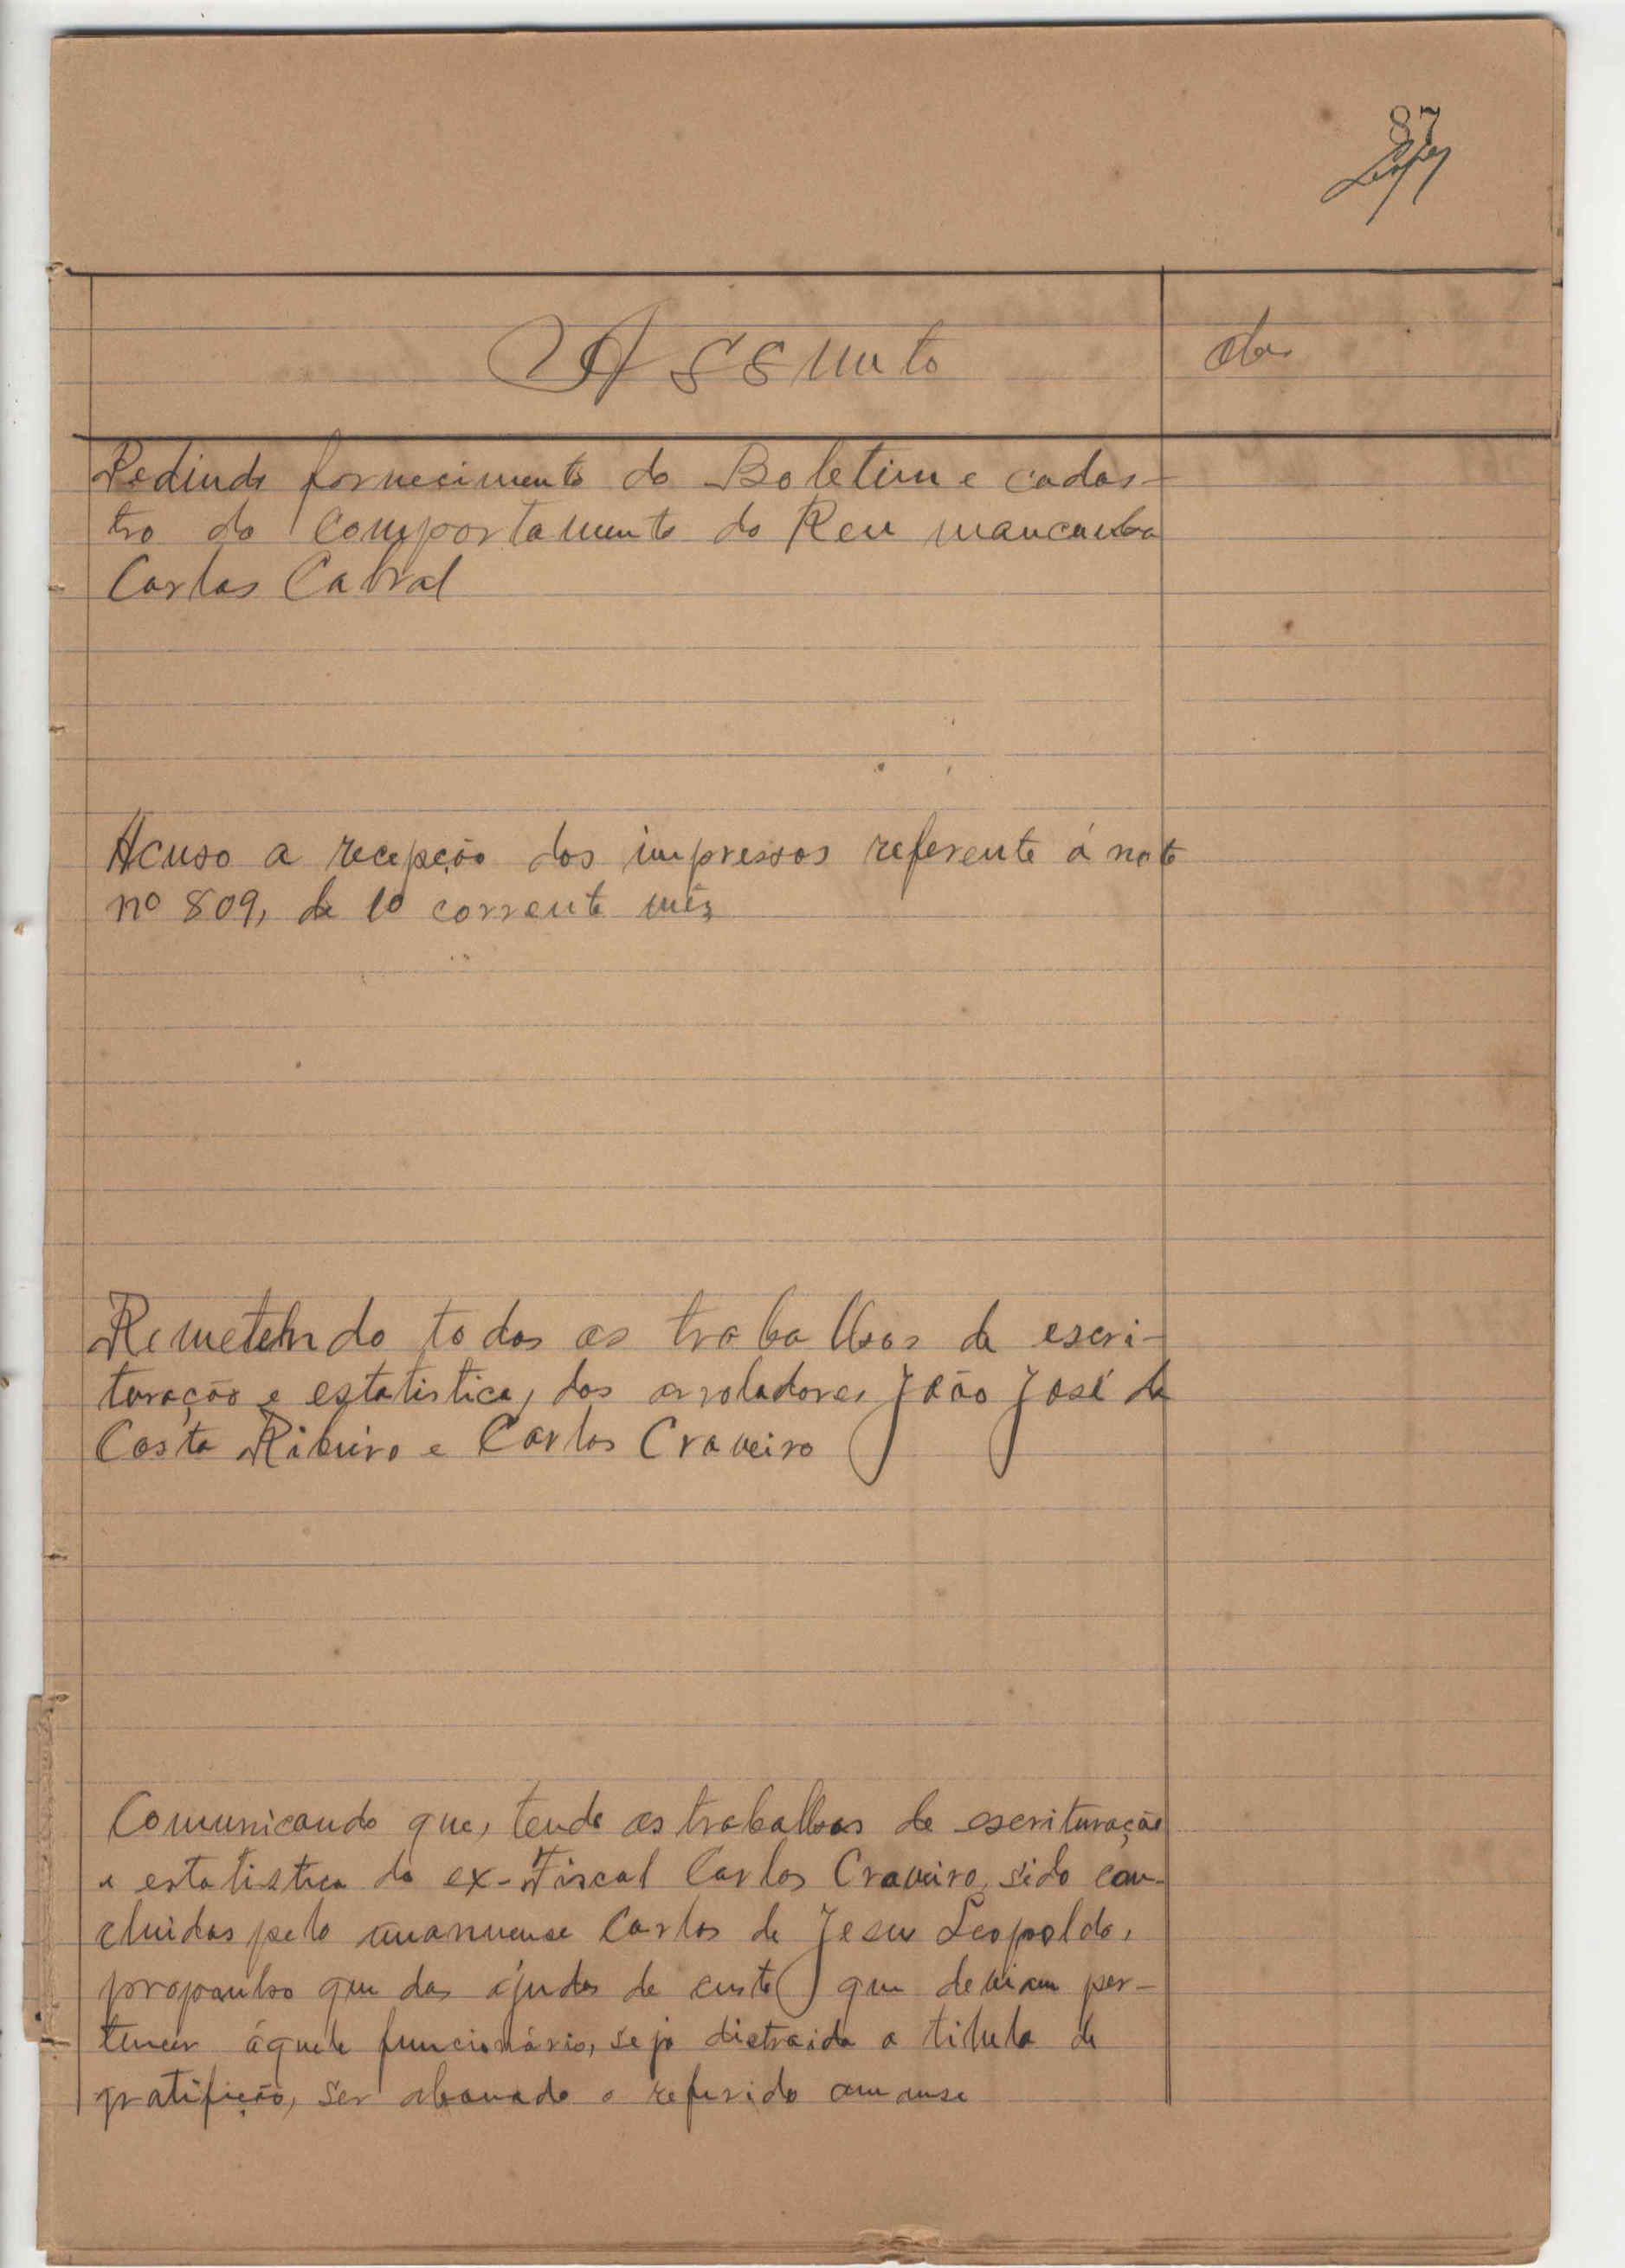 87
Lopes
Assunto
Pedindo fornecimento do Boletim e cadas-
tro do Comportamento do Reu mancamba
Carlos Cabral
Acuso a recepção dos impressos referente á nota
nº 809, de 10 corrente mês
Remetendo todos os trabalhos de escri-
turação e estatistica, dos arroladores João José da
Costa Ribeiro e Carlos Craveiro
Comunicando que, tendo os trabalhos de escrituração
e estatistica do ex-Fiscal Carlos Craveiro, sido con-
cluidos pelo amanuense Carlos de Jesus Leopoldo,
proponho que das ajudas de custo que deviam per-
tencer áquele funcionário, seja distraida a titulo de
gratifição, ser abonado o referido amanse